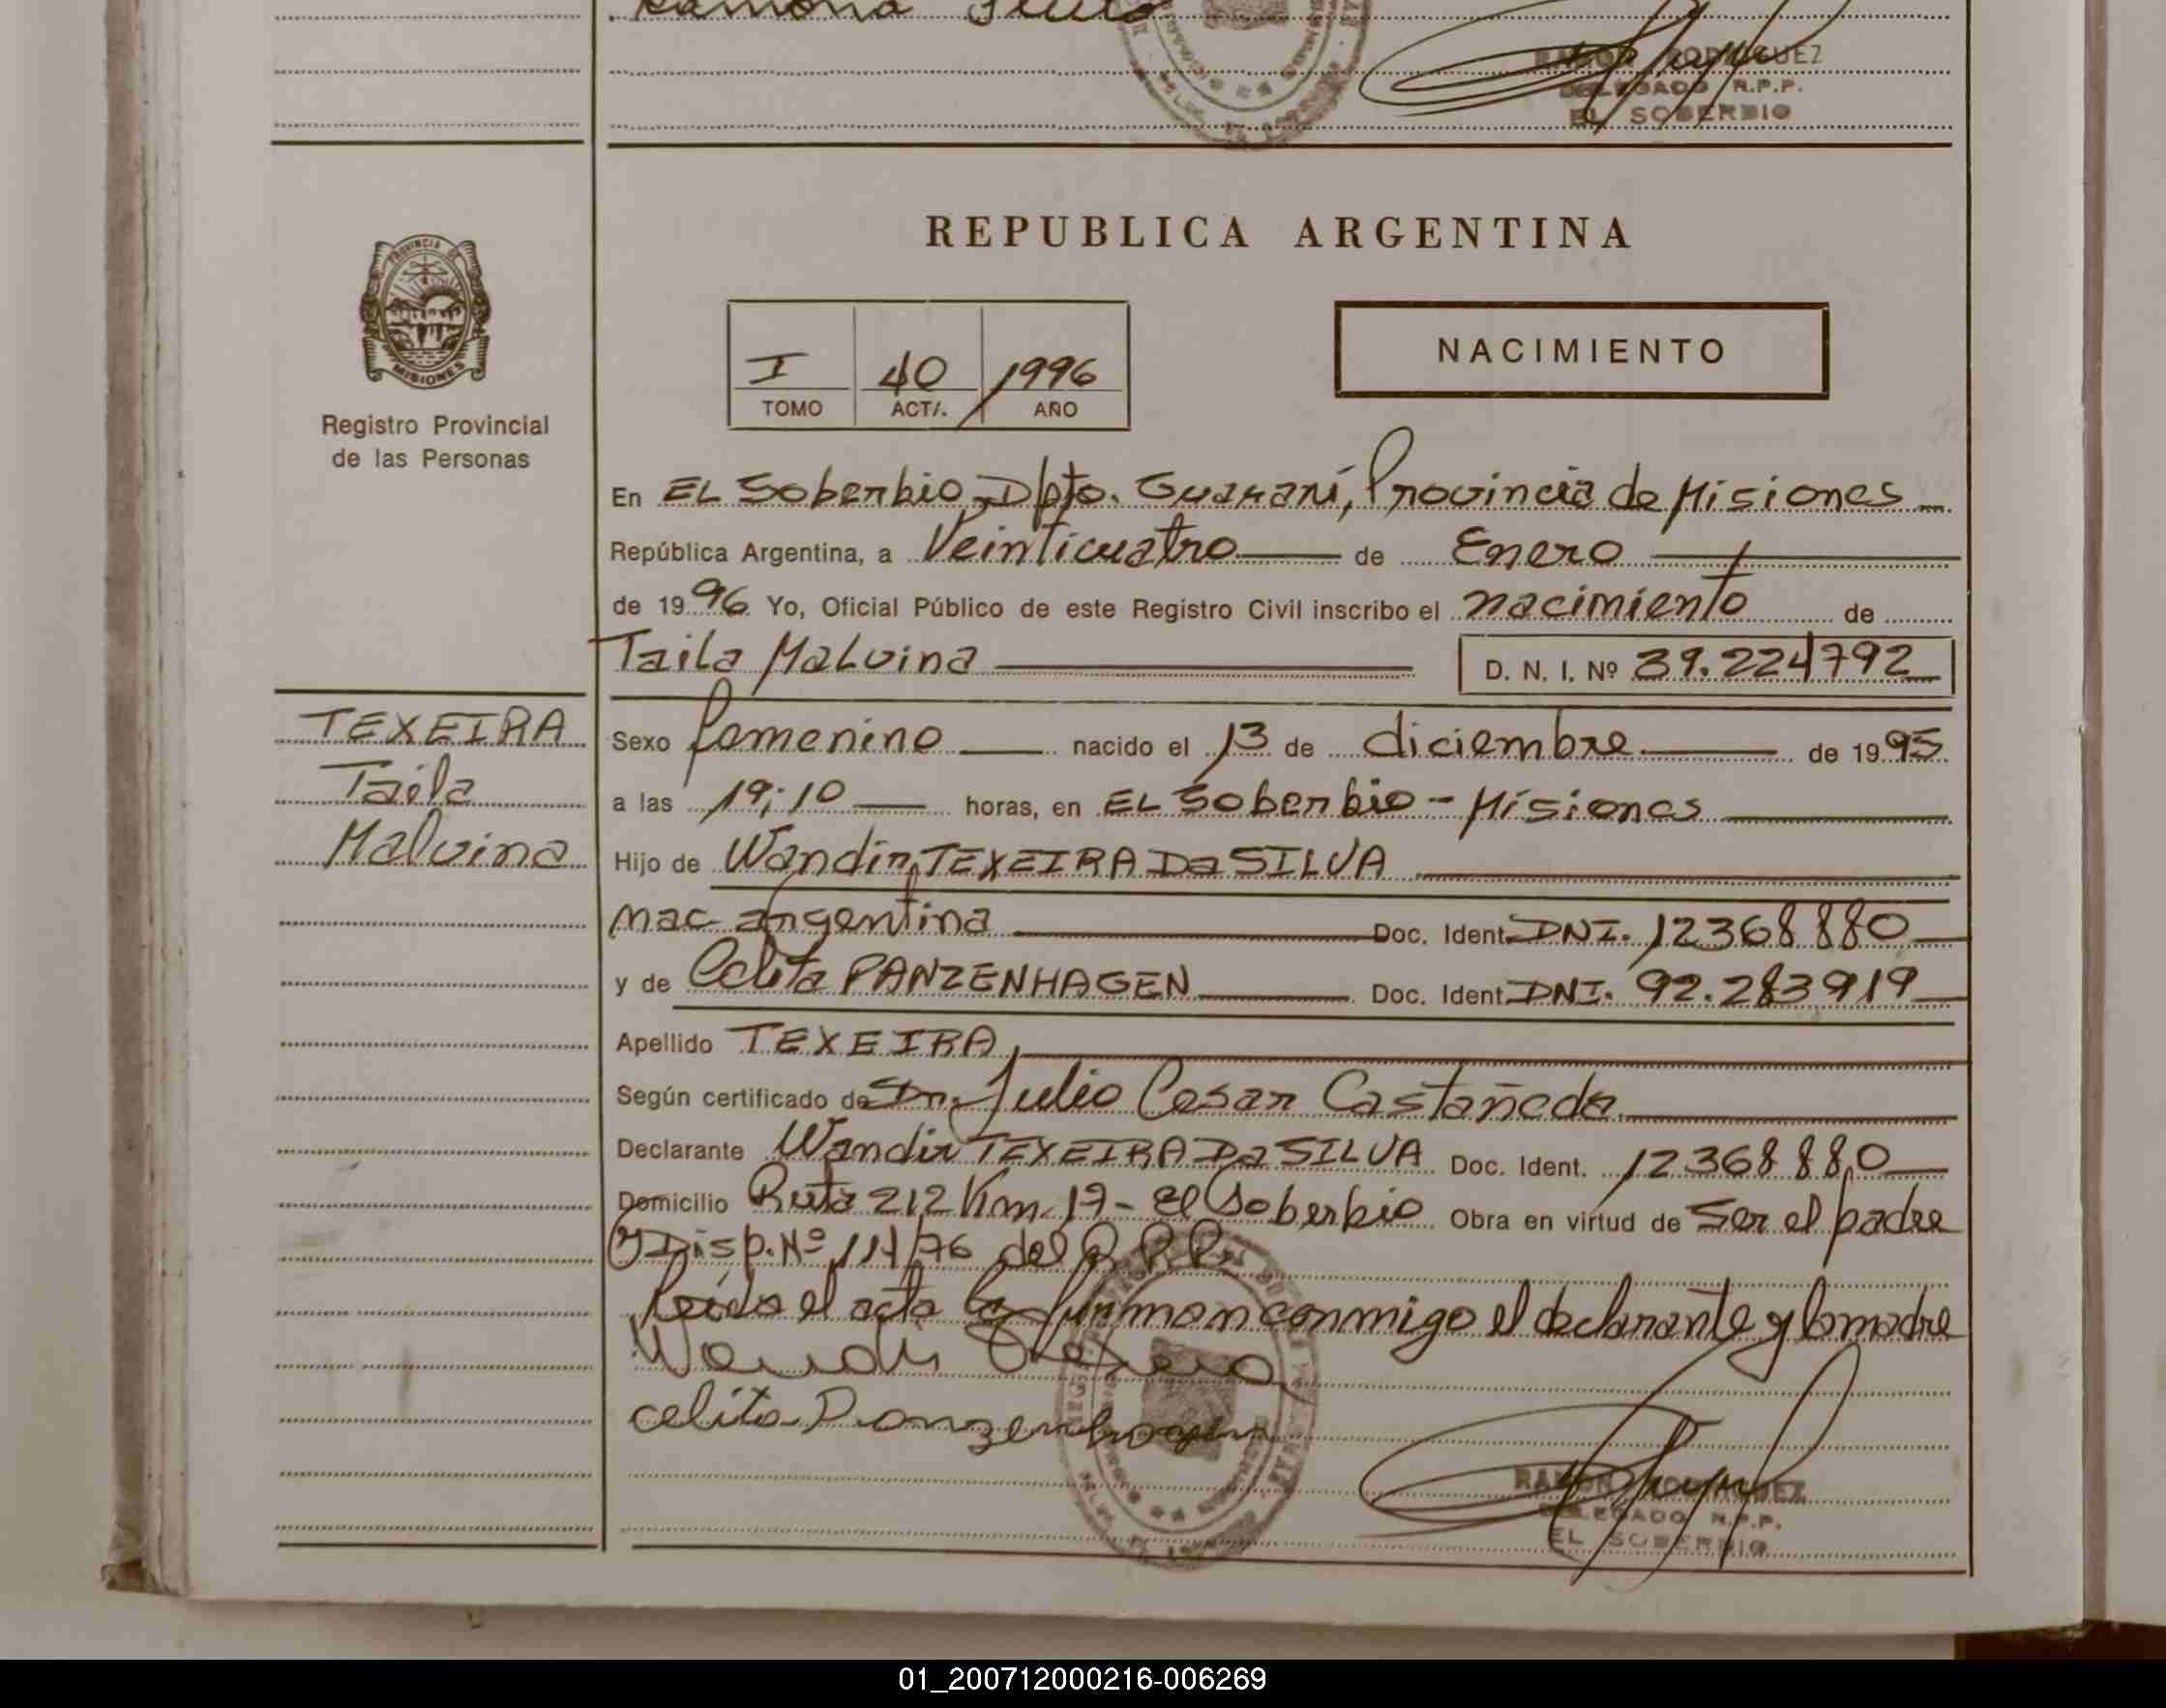 Ramona
RAMON RODRIGUEZ
DELEGADO R.P.P.
EL SOBERBIO
REPUBLICA ARGENTINA
PROVINCIA DE
MISIONES
Registro Provincial
de las Personas
I 40 1996
TOMO ACTA. AÑO
NACIMIENTO
En EL Soberbio, Dpto. Guaraní, Provincia de Misiones
República Argentina, a Veinticuatro de Enero
de 1996. Yo, Oficial Público de este Registro Civil inscribo el nacimiento de
Taila Malvina D. N. I. Nº 39.224792
TEXEIRA
Taila
Malvina
Sexo femenino nacido el 13 de diciembre de 1995
a las 19:10 horas, en EL Soberbio - Misiones
Hijo de Wandir TEXEIRA Da SILVA
nac- argentina Doc. Ident. DNI. 12368880
y de Celita PANZENHAGEN Doc. Ident. DNI. 92.283919
Apellido TEXEIRA
Según certificado de Dr. Julio Cesar Castañeda
Declarante Wandir TEXEIRA Da SILVA Doc. Ident. 12368880
Domicilio Ruta 212 Km. 17 - El Soberbio Obra en virtud de Ser el padre
y Disp. Nº 114/76 del R.P.P.
Leida el acta la firman conmigo el declarante y la madre
Wandir
celita Panzenhagen
RAMON RODRIGUEZ
DELEGADO R.P.P.
EL SOBERBIO
01_200712000216-006269